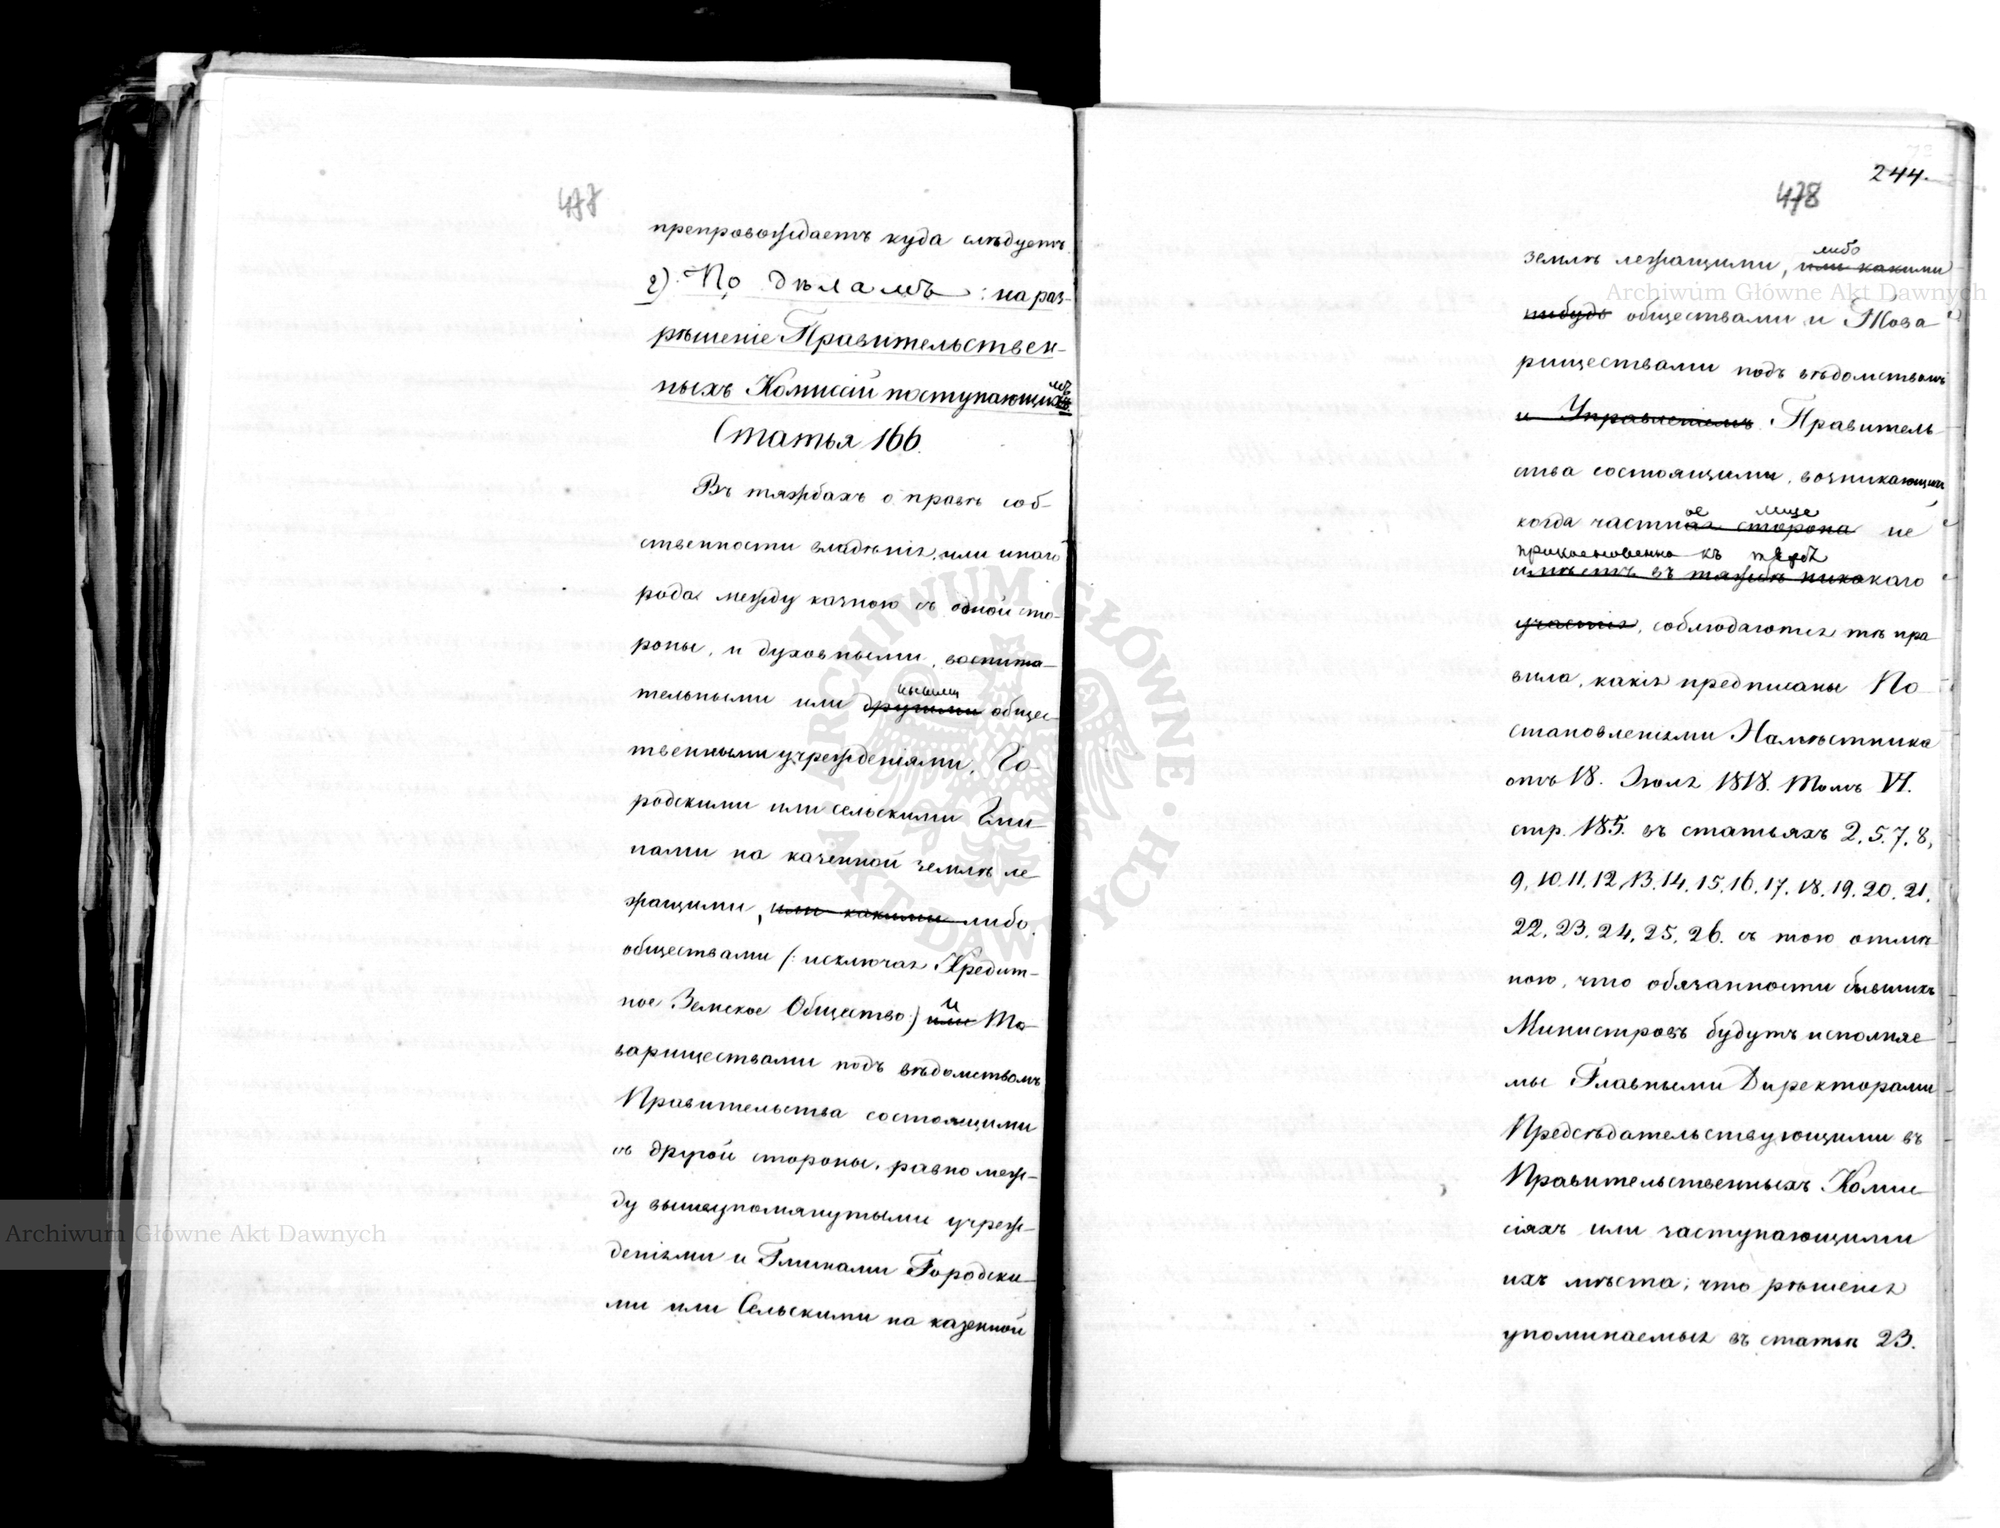 477
препровождаетъ куда слѣдуетъ.
г) По дѣламъ: на раз-
рѣшеніе Правительствен-
ныхъ Комиссій поступающимъ
Статья 166.
Въ тяжбахъ о правѣ соб-
ственности владѣнія, или инаго
рода между казною съ одной сто-
роны, и духовными, воспита-
ными
тельными или другими общес-
твенными учрежденіями, Го-
родскими или сельскими Гми-
нами на казенной землѣ ле-
жащими, или какими либо
обществами (: исключая Кредит-
и
ное Земское Общество:) или То-
вариществами подъ вѣдомствомъ
Правительства состоящими
съ другой стороны, равно меж-
ду вышеупомянутыми учреж-
деніями и Гминами Городски-
ми или Сельскими на казенной
244.
478
либо
землѣ лежащими, или какими
нибудь обществами и Това
риществами подъ вѣдомствомъ
и Управленіемъ Правитель-
ства состоящими, возникающихъ
ое лице
когда частная сторона не
прикосновенно къ тяжбѣ
имѣетъ въ тяжбѣ никакого
участія, соблюдаются тѣ пра
вила, какія предписаны По-
становленіями Намѣстника
отъ 18. Іюля 1818. Томъ VI.
стр. 185. въ статьяхъ 2, 5. 7. 8,
9, 10. 11, 12, 13. 14, 15, 16. 17, 18. 19. 20. 21,
22, 23, 24, 25, 26. съ тою отмѣ-
ною, что обязанности бывшихъ
Министровъ будутъ исполняе-
мы Главными Директорами
Предсѣдательствующими въ
Правительственныхъ Комми-
сіяхъ или заступающими
ихъ мѣста; что рѣшенія
упоминаемыя въ статьѣ 23.
Archiwum Główne Akt Dawnych
Archiwum Główne Akt Dawnych
ARCHIWUM GŁÓWNE AKT DAWNYCH